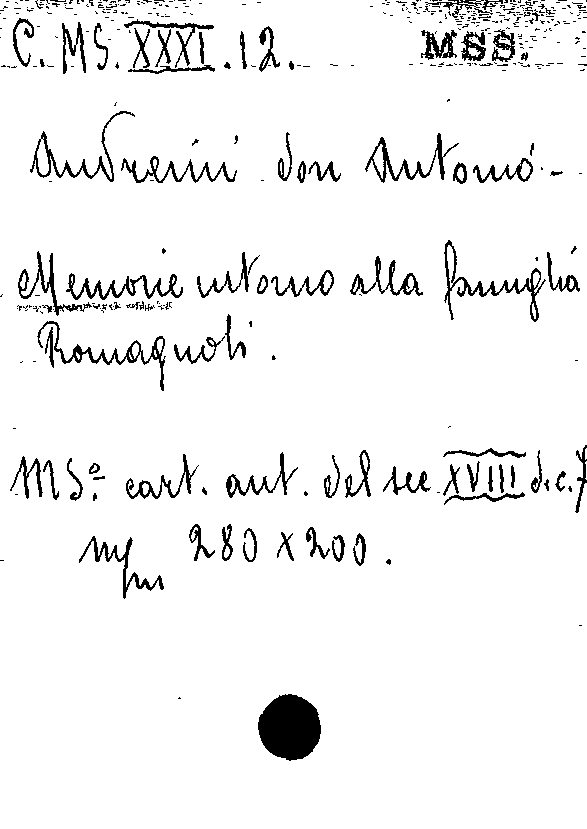 C. MS. XXXI. 12. MSS.
Andreini don Antonio -
Memorie intorno alla famiglia
Romagnoli.
MSº. cart. aut. del sec XVIII di c. 7
280 x 200.